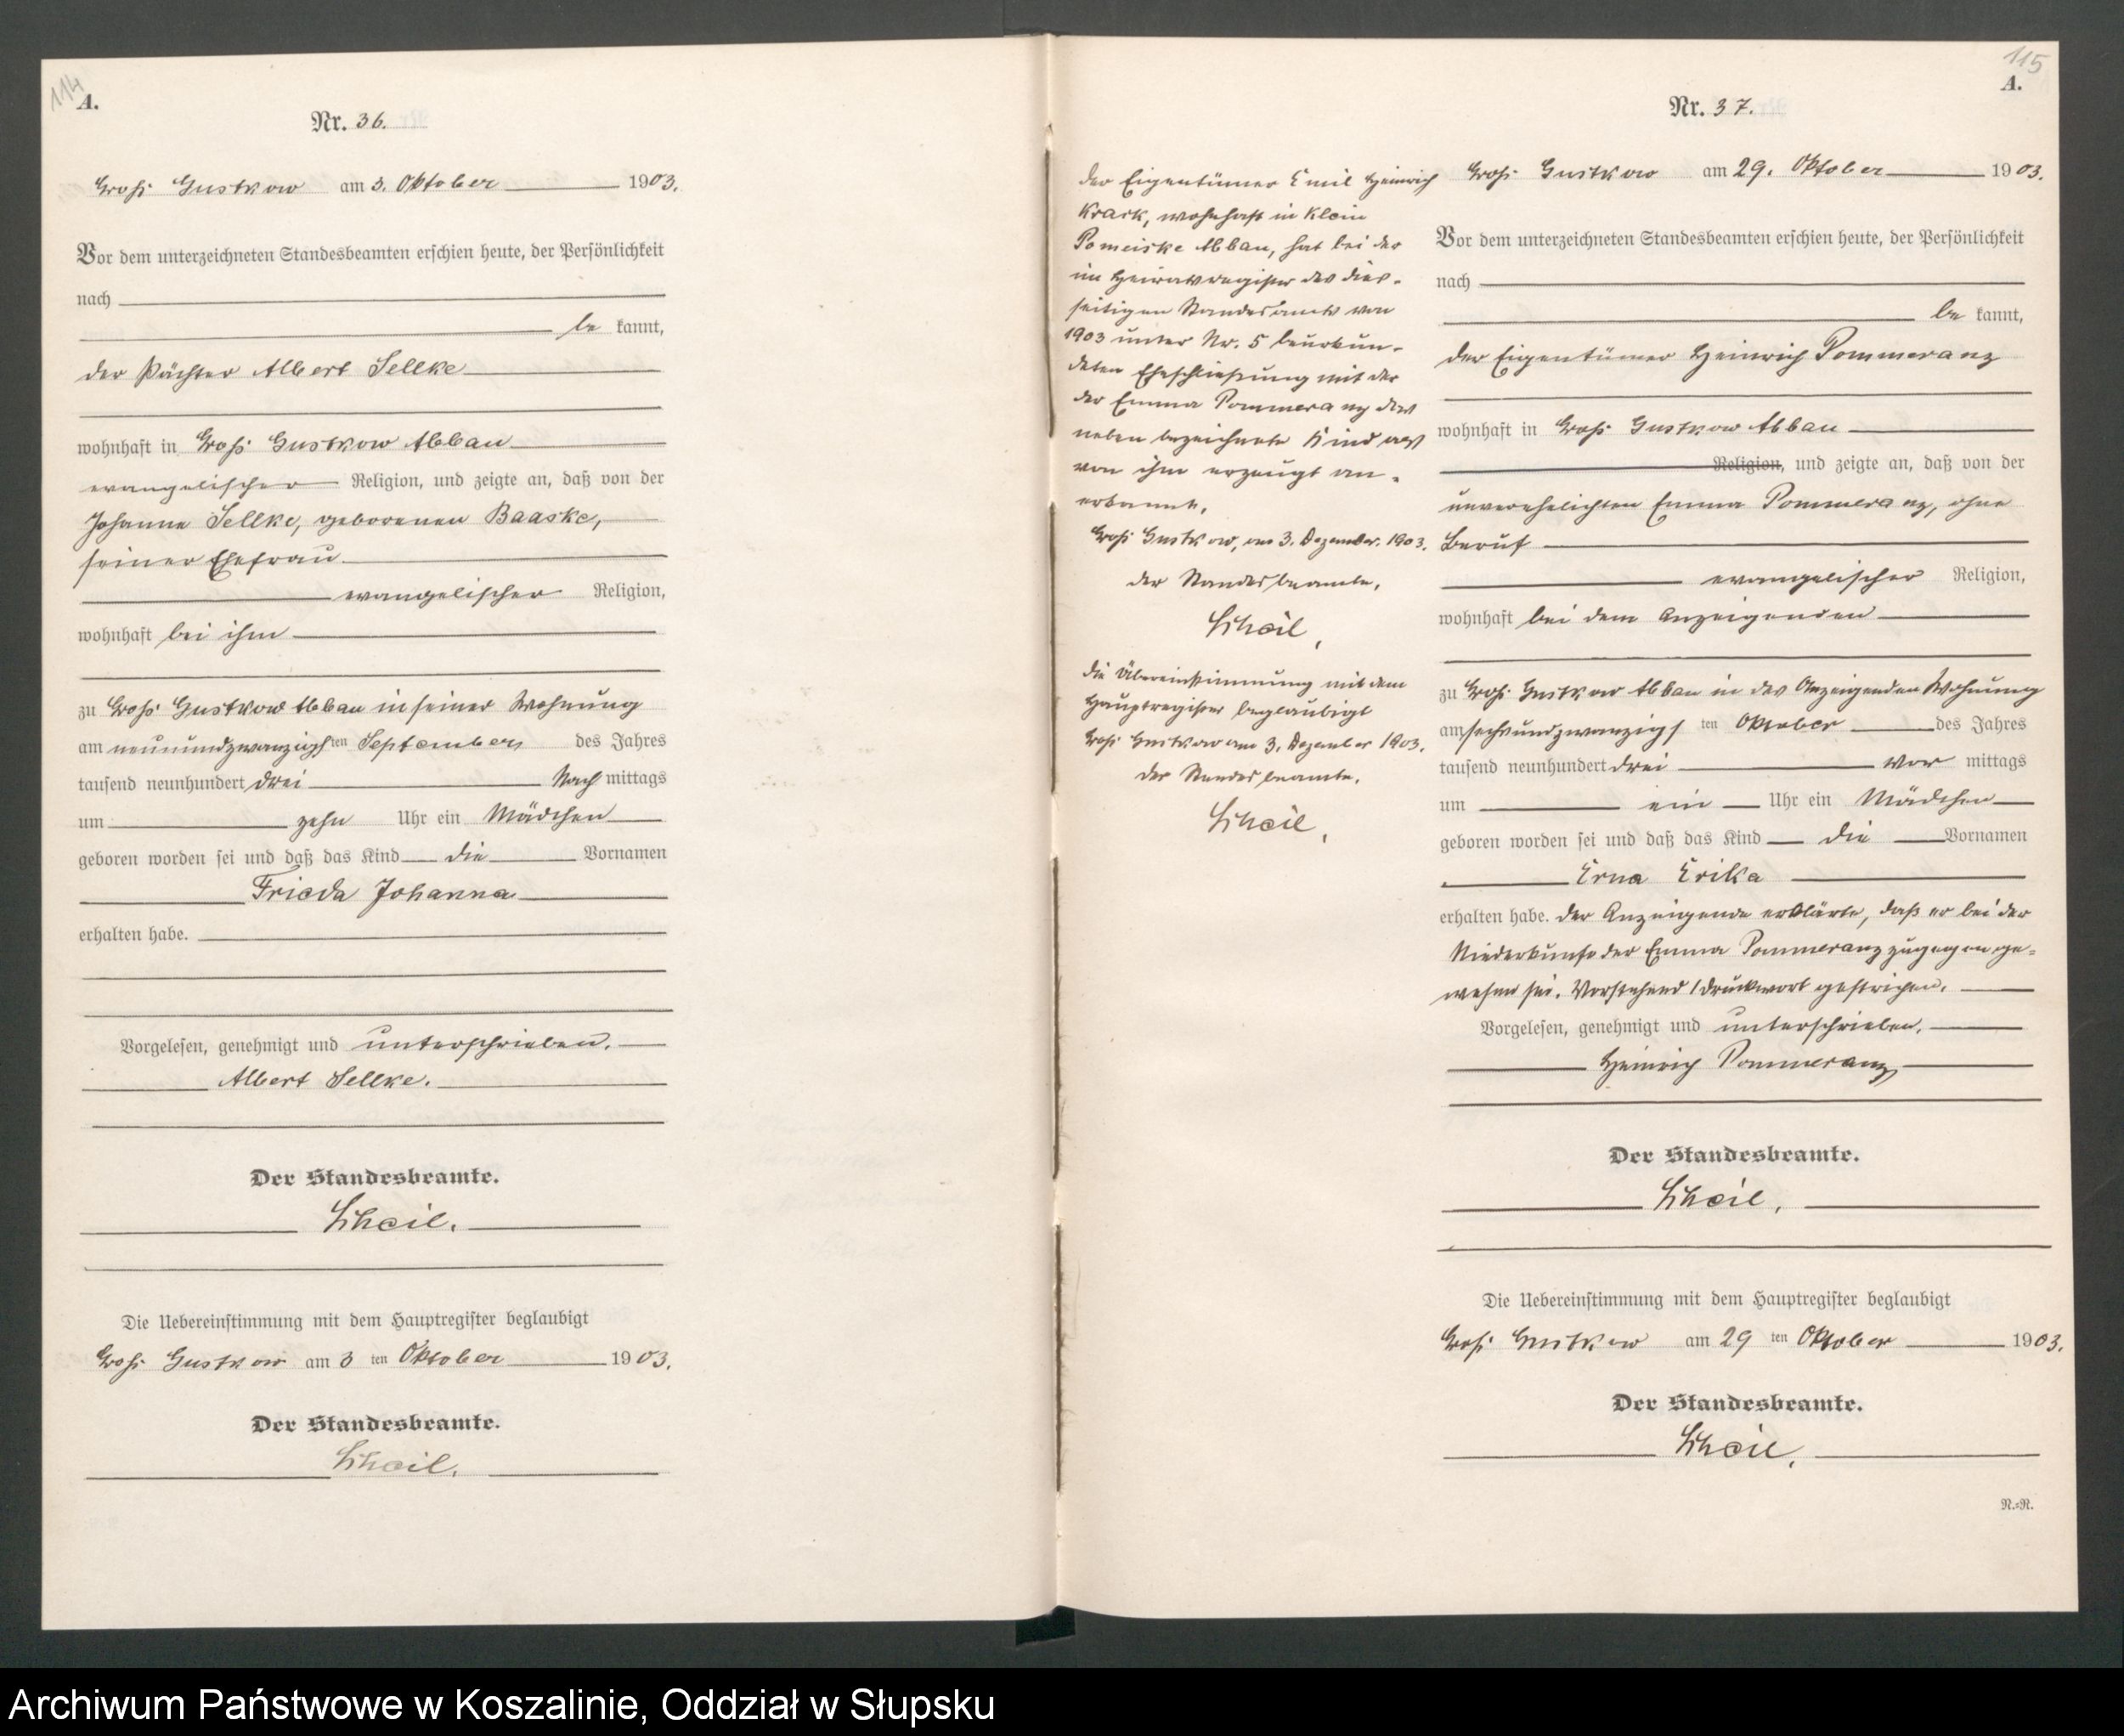 114
A.
Nr. 36.
Groß Gustkow am 3. Oktober 1903.
Vor dem unterzeichneten Standesbeamten erschien heute, der Persönlichkeit
nach
be kannt,
der Pächter Albert Sellke
wohnhaft in Groß Gustkow Abbau
evangelischer Religion, und zeigte an, daß von der
Johanne Sellke, geborenen Baaske,
seiner Ehefrau
evangelischer Religion,
wohnhaft bei ihm
zu Groß Gustkow Abbau in seiner Wohnung
am neunundzwanzigsten September des Jahres
tausend neunhundert drei Nach mittags
um zehn Uhr ein Mädchen
geboren worden sei und daß das Kind die Vornamen
Frieda Johanna
erhalten habe.
Vorgelesen, genehmigt und unterschrieben.
Albert Sellke.
Der Standesbeamte.
Scheil.
Die Uebereinstimmung mit dem Hauptregister beglaubigt
Groß Gustkow am 3 ten Oktober 1903.
Der Standesbeamte.
Scheil.
115
A.
Nr. 37.
Der Eigentümer Emil Heinrich
Krack, wohnhaft in Klein
Pomeiske Abbau, hat bei der
im Heiratsregister des dies-
seitigen Standesamts von
1903 unter Nr. 5 beurkun-
deten Eheschließung mit der
der Emma Pommeranz das
neben bezeichnete Kind als
von ihm erzeugt an-
erkannt.
Groß Gustkow, am 3. Dezember 1903.
Der Standesbeamte.
Scheil.
Die Übereinstimmung mit dem
Hauptregister beglaubigt
Groß Gustkow am 3. Dezember 1903.
Der Standesbeamte.
Scheil.
Groß Gustkow am 29. Oktober 1903.
Vor dem unterzeichneten Standesbeamten erschien heute, der Persönlichkeit
nach
be kannt,
der Eigentümer Heinrich Pommeranz
wohnhaft in Groß Gustkow Abbau
Religion, und zeigte an, daß von der
unverehelichten Emma Pommeranz, ohne
Beruf
evangelischer Religion,
wohnhaft bei dem Anzeigenden
zu Groß Gustkow Abbau in des Anzeigenden Wohnung
am sechsundzwanzigs ten Oktober des Jahres
tausend neunhundert drei Vor mittags
um ein Uhr ein Mädchen
geboren worden sei und daß das Kind die Vornamen
Erna Erika
erhalten habe. Der Anzeigende erklärte, daß er bei der
Niederkunft der Emma Pommeranz zugegen ge-
wesen sei. Vorstehend 1 Druckwort gestrichen.
Vorgelesen, genehmigt und unterschrieben.
Heinrich Pommeranz
Der Standesbeamte.
Scheil.
Die Uebereinstimmung mit dem Hauptregister beglaubigt
Groß Gustkow am 29 ten Oktober 1903.
Der Standesbeamte.
Scheil.
N.=R.
Archiwum Państwowe w Koszalinie, Oddział w Słupsku